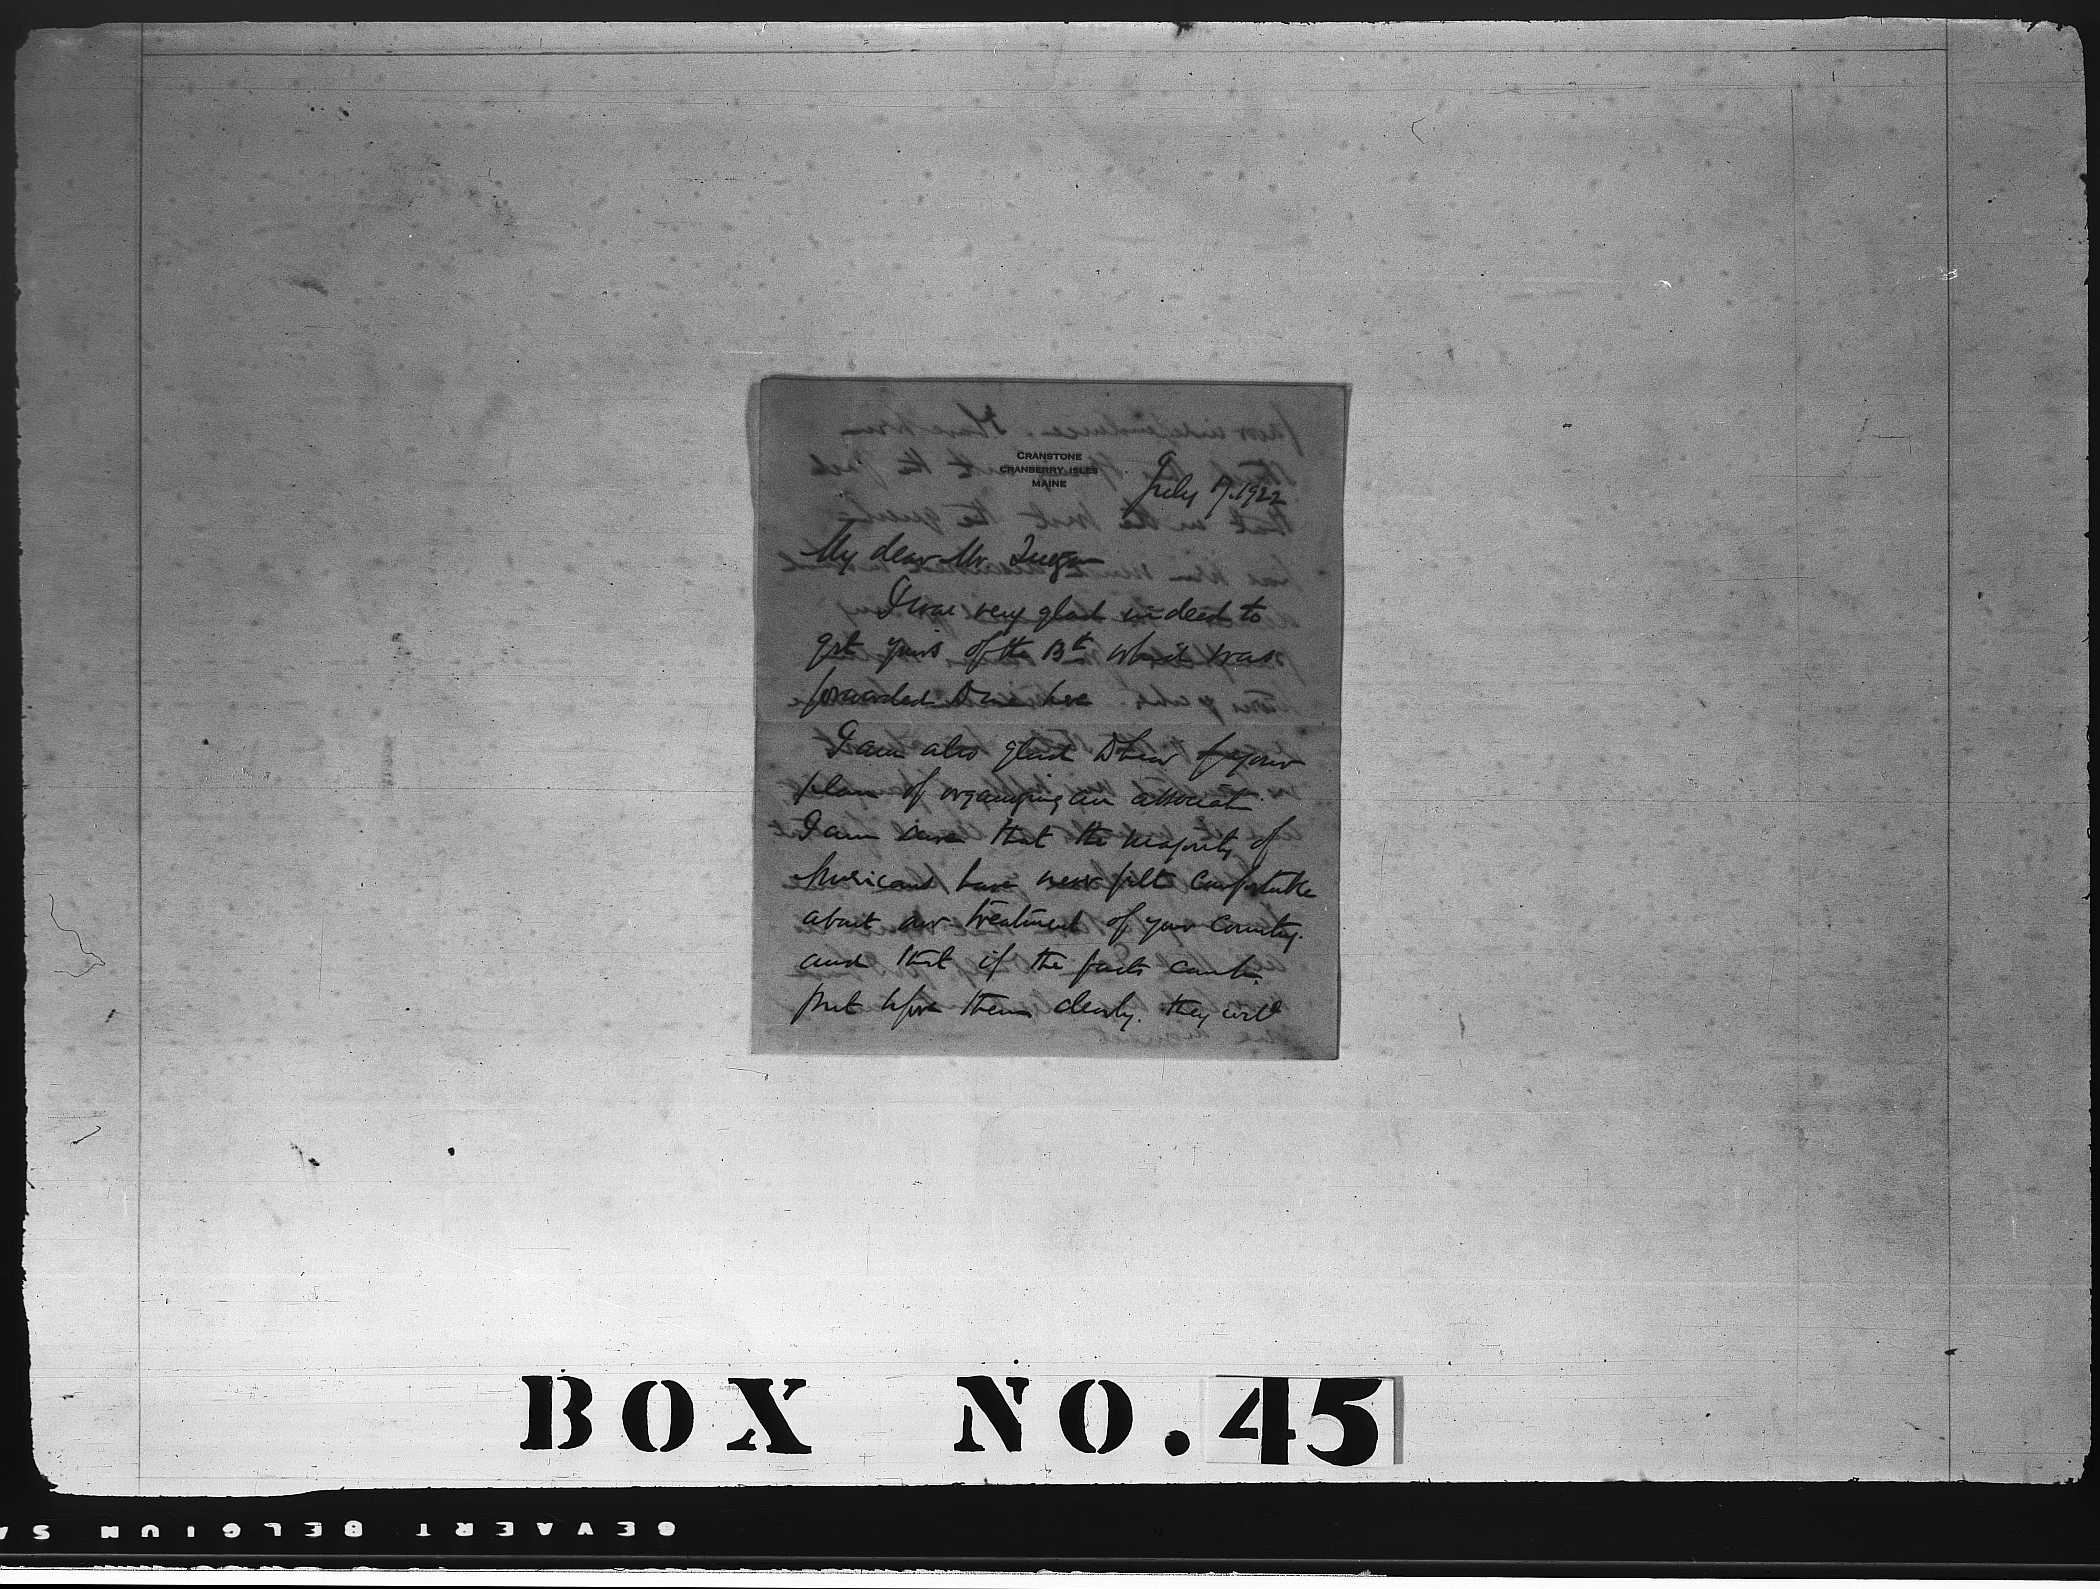 CRANSTONE
CRANBERRY ISLES
MAINE
July 17. 1922
My dear Mr. Quezon
I was very glad indeed to
get yours of the 13th which was
forwarded to me here
I am also glad to hear of your
plan of organizing an associat
I am sure that the majority of
Americans have never felt comfortable
about our treatment of your country.
and that if the facts can be
put before them clearly. they will
BOX NO. 45
GEVAERT BELGIUM SA